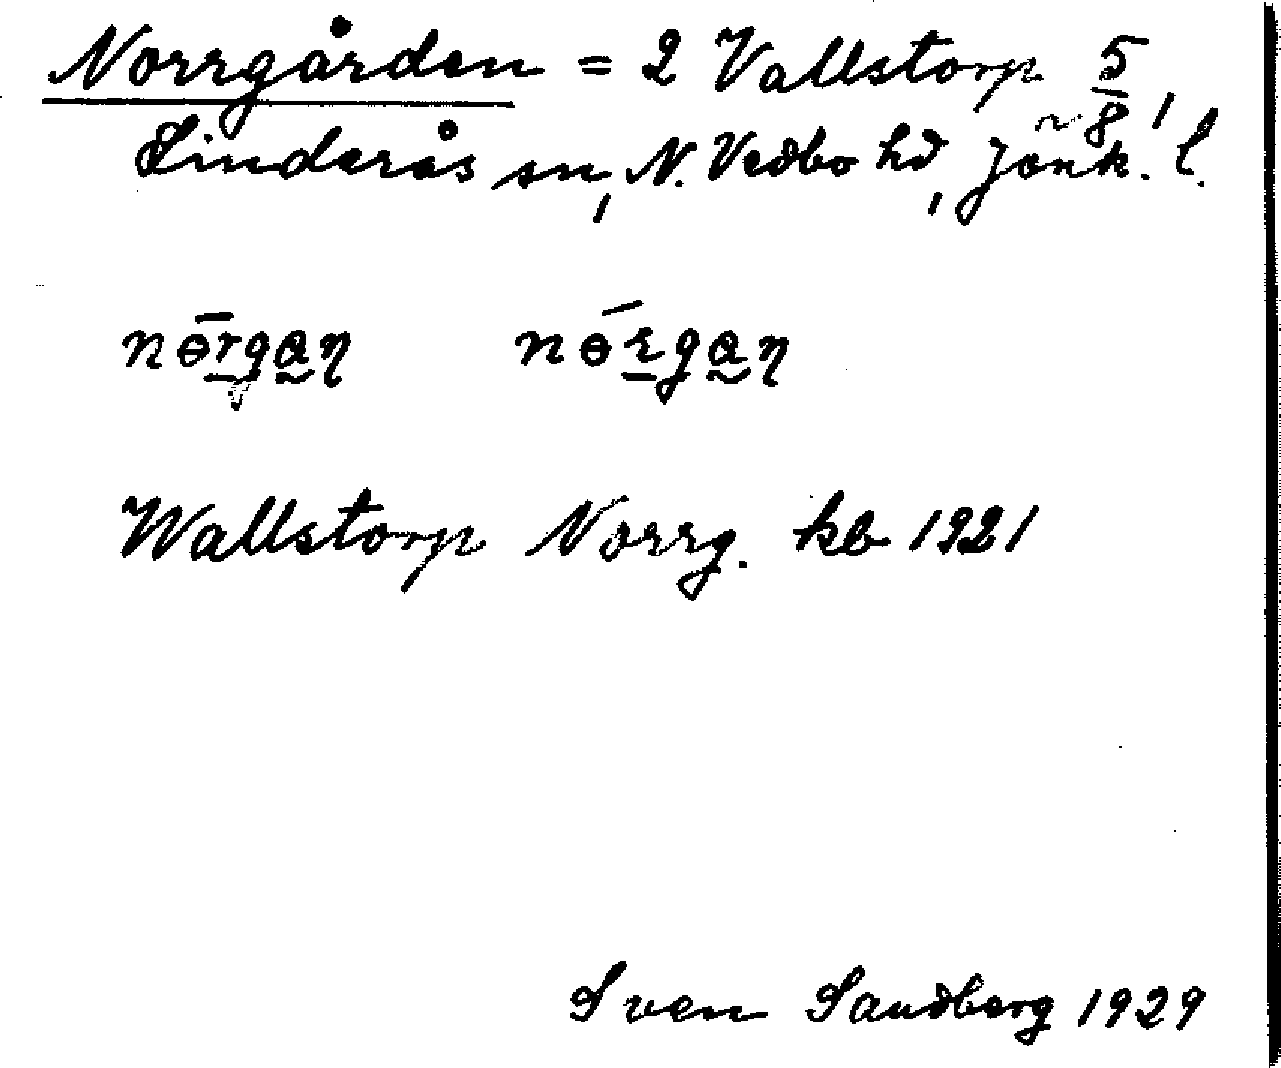 Norrgården = 2 Vallstorp 5/8,
Linderås sn, N. Vedbo hd, Jönk. l.
Wallstorp Norrg. kb 1921
Sven Sandberg 1929